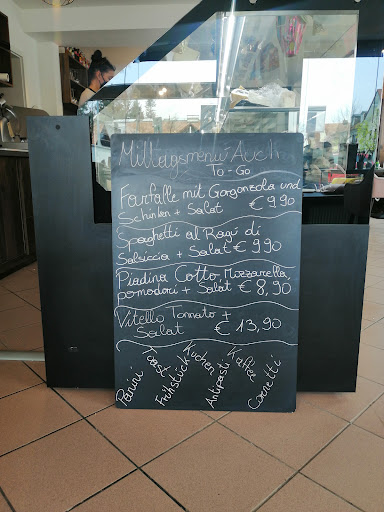 Mittagsmenü Auch
To-Go
Farfalle mit Gorgonzola und
Schinken + Salat € 9,90
Spaghetti al Ragù di
Salsiccia + Salat € 9,90
Piadina Cotto, Mozzarella,
pomodori + Salat € 8,90
Vitello Tonnato +
Salat € 13,90
Panini
Toast
Frühstück
Kuchen
Antipasti
Kaffee
Cornetti